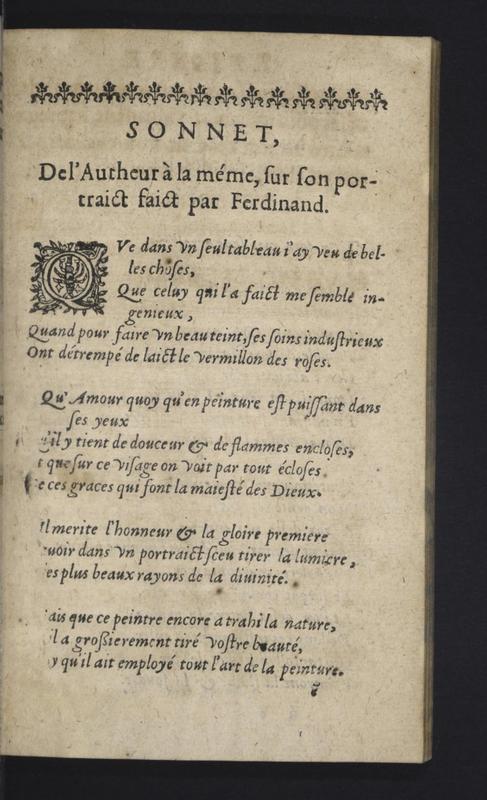 SONNET,
De l'Autheur à la méme, sur son por-
traict faict par Ferdinand.
QVe dans vn seul tableau i'ay veu de bel-
les choses,
Que celuy qui l'a faict me semble in-
genieux,
Quand pour faire vn beau teint, ses soins industrieux
Ont détrempé de laict le vermillon des roses.
Qu'Amour quoy qu'en peinture est puissant dans
ses yeux
'il y tient de douceur & de flammes encloses,
que sur ce visage on voit par tout écloses
e ces graces qui font la maiesté des Dieux.
Il merite l'honneur & la gloire premiere
uoir dans vn portraict sceu tirer la lumiere,
es plus beaux rayons de la diuinité.
ais que ce peintre encore a trahi la nature,
il a grossierement tiré vostre beauté,
y qu'il ait employé tout l'art de la peinture.